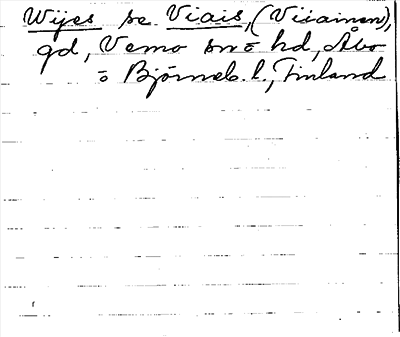 Wijes se Viais, (Viiainen),
gd, Vemo sn o hd, Åbo
o Björneb. l., Finland